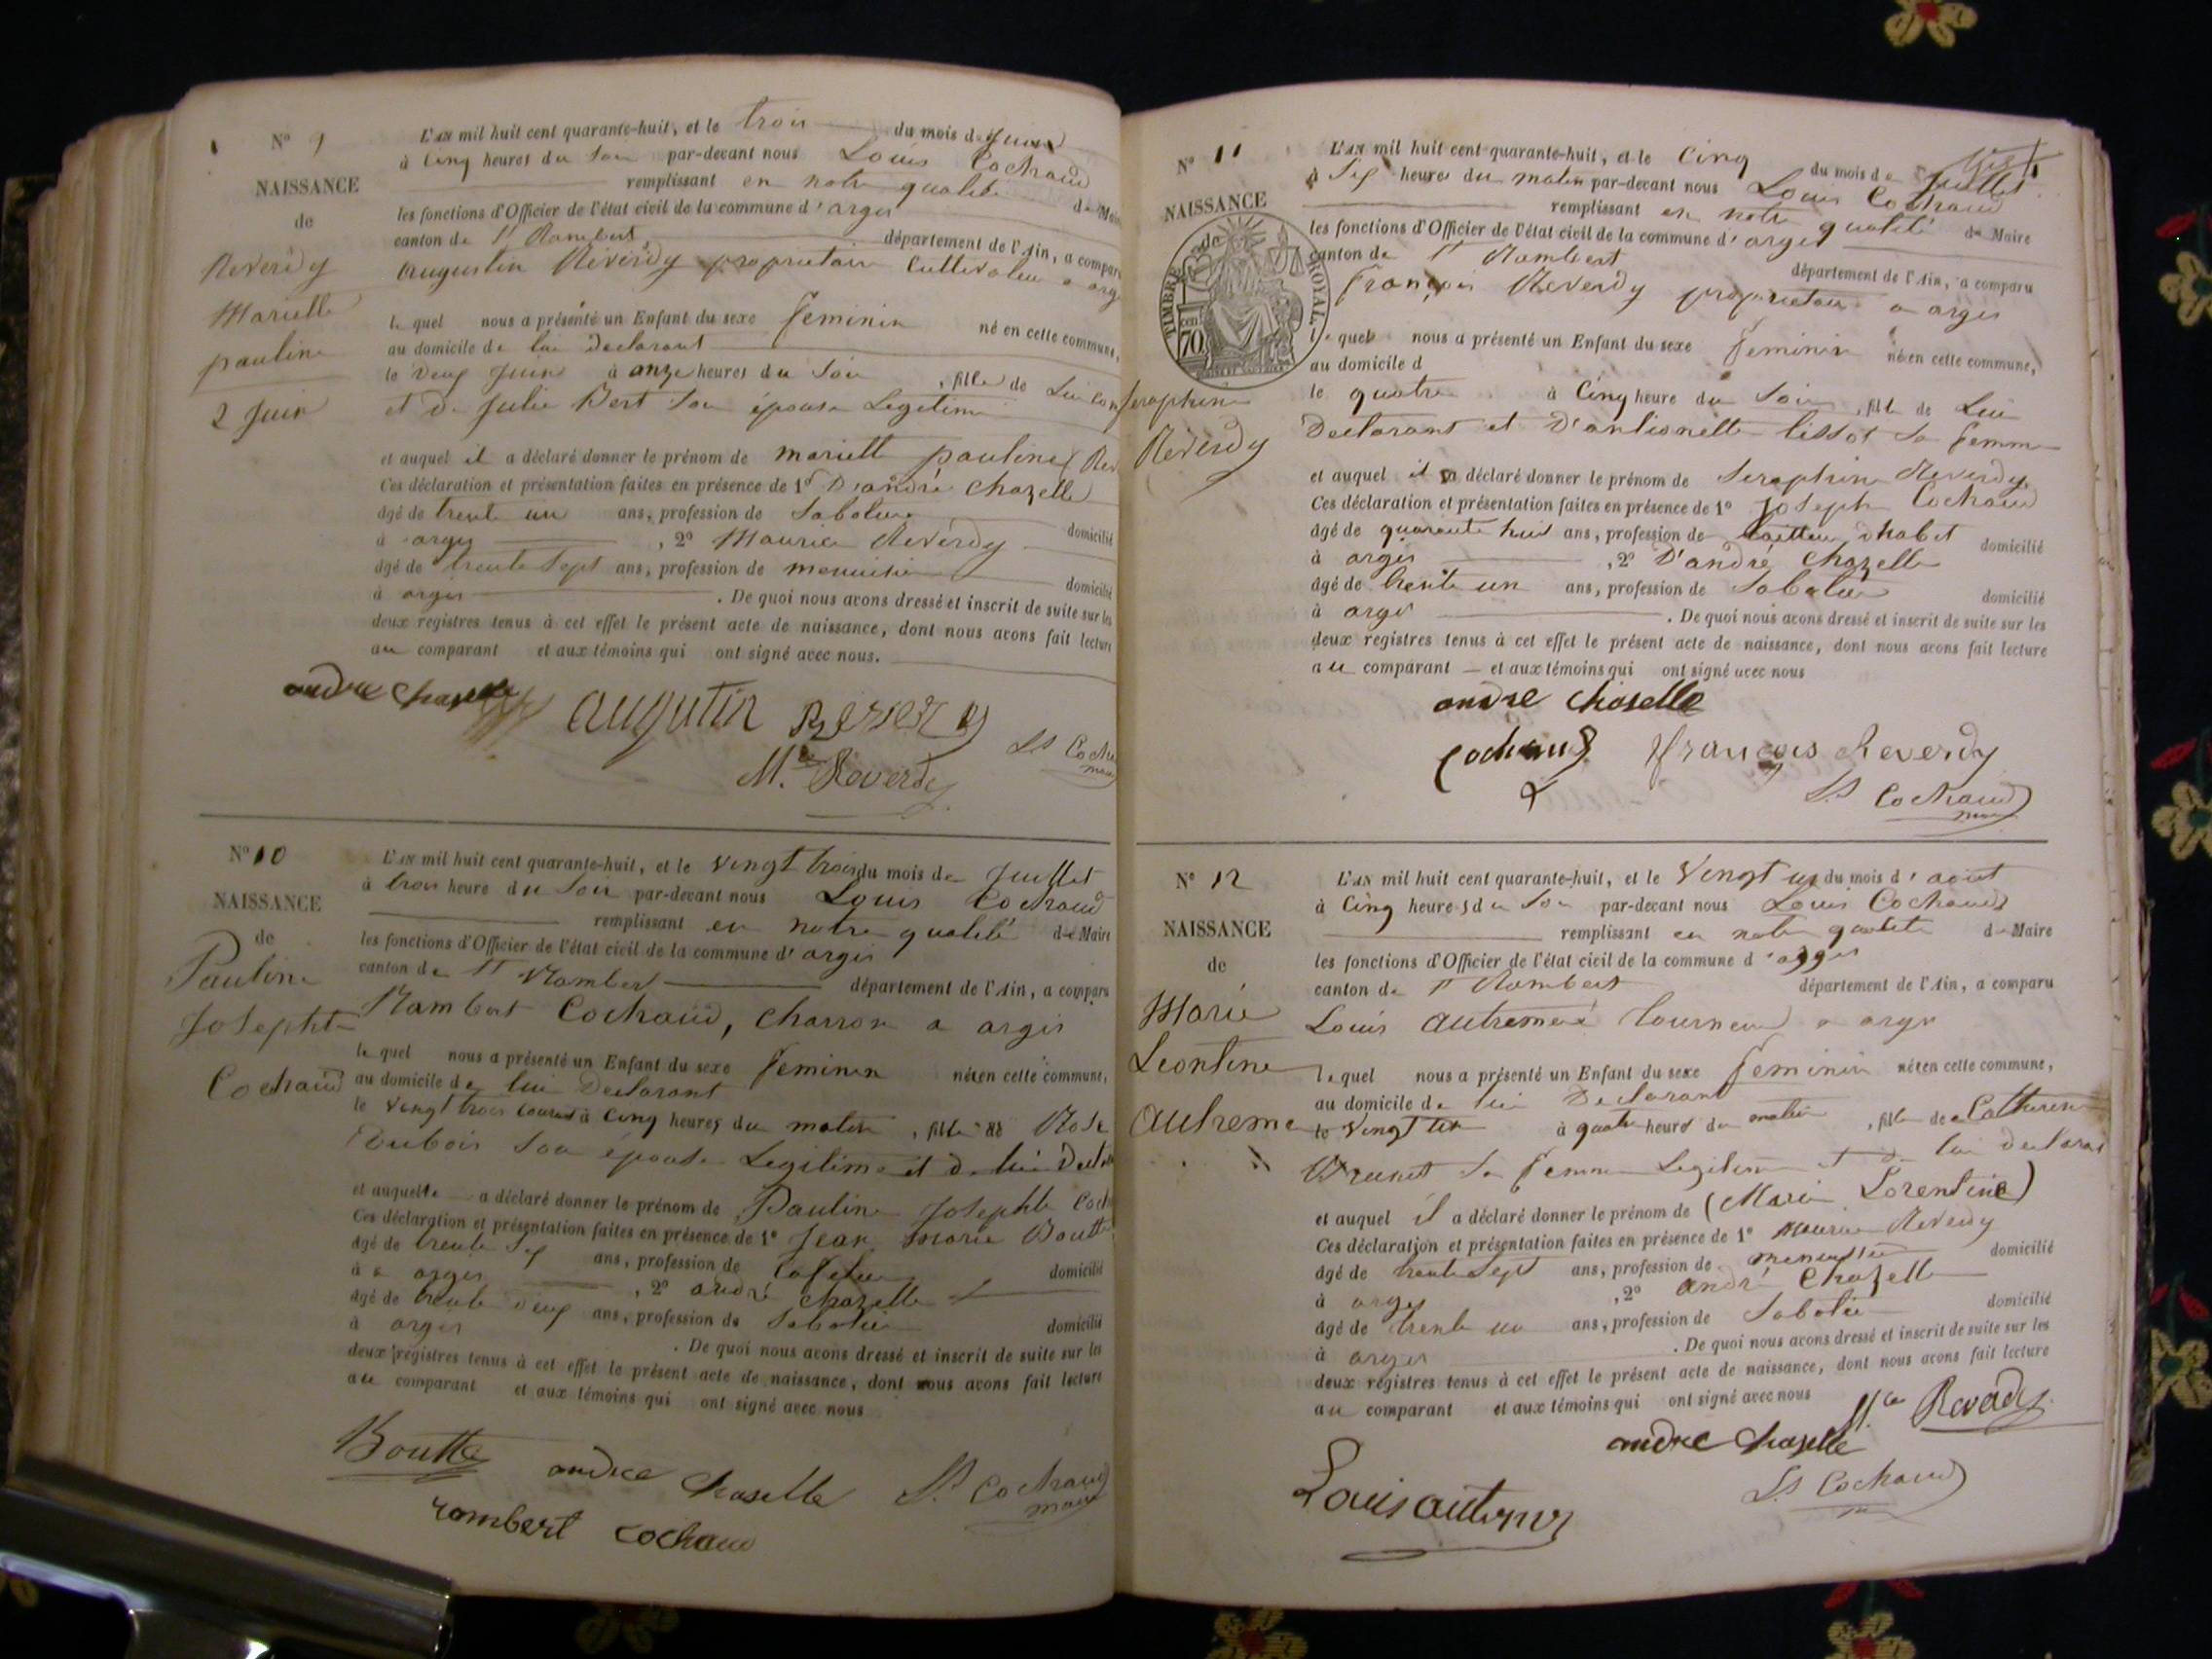 N° 9
NAISSANCE
de
Reverdy
Mariette
pauline
2 Juin
L'AN mil huit cent quarante-huit, et le trois du mois de Juin
à Cinq heures du Soir par-devant nous Louis Cochaud
remplissant en notre qualité de Maire
les fonctions d'Officier de l'état civil de la commune d'argis
canton de St Rambert département de l'Ain, a comparu
augustin Reverdy proprietaire Cultivateur a arg
le quel nous a présenté un Enfant du sexe feminin né en cette commune,
au domicile de lui Declarant
le Deux Juin à onze heures du Soir, fille de Lui
et de Julie Bert Son épouse Legitime
et auquel il a déclaré donner le prénom de mariette pauline Rev
Ces déclaration et présentation faites en présence de 1° D'andré Chazelle
âgé de trente un ans, profession de Sabotier domicilié
à argis, 2° Maurice Reverdy
âgé de trente Sept ans, profession de menuisier domicilié
à argis. De quoi nous avons dressé et inscrit de suite sur les
deux registres tenus à cet effet le présent acte de naissance, dont nous avons fait lecture
au comparant et aux témoins qui ont signé avec nous.
andre Chaselle augutin Reverdy
Ls Coch
M.ce Reverdy
N° 10
NAISSANCE
de
Pauline
Josephte
Cochaud
L'AN mil huit cent quarante-huit, et le vingt trois du mois de Juillet
à trois heure du Soir par-devant nous Louis Cochaud
remplissant en notre qualité de Maire
les fonctions d'Officier de l'état civil de la commune d'argis
canton de St Rambert département de l'Ain, a comparu
Rambert Cochaud, Charron a argis
le quel nous a présenté un Enfant du sexe feminin née en cette commune,
au domicile de lui Declarant
le vingt trois courant à cinq heures du matin, fille de Rose
Dubois Son épouse Legitime et de lui Decl
et auquelle a déclaré donner le prénom de Pauline Josephte Coch
Ces déclaration et présentation faites en présence de 1° Jean Marie Boutt
âgé de trente Six ans, profession de Cafetier domicilié
à a argis, 2° andré Chazelle
âgé de trente deux ans, profession de Sabotier domicilié
à argis. De quoi nous avons dressé et inscrit de suite sur les
deux registres tenus à cet effet le présent acte de naissance, dont nous avons fait lecture
au comparant et aux témoins qui ont signé avec nous
Boutte andre Chaselle Ls Cochaud
maire
rambert cochaud
N° 11
NAISSANCE
TIMBRE ROYAL
70
Seraphine
Reverdy
L'AN mil huit cent quarante-huit, et le Cinq du mois de Juillet
à Six heures du matin par-devant nous Louis Cochaud
remplissant en notre qualité de Maire
les fonctions d'Officier de l'état civil de la commune d'argis
canton de St Rambert département de l'Ain, a comparu
françois Reverdy proprietaire a argis
le quel nous a présenté un Enfant du sexe feminin née en cette commune,
au domicile d
le quatre à Cinq heure du Soir, fille de Lui
Declarant et D'antionette tissot Sa femme
et auquel il a déclaré donner le prénom de Seraphine Reverdy
Ces déclaration et présentation faites en présence de 1° Joseph Cochaud
âgé de quarante huit ans, profession de tailleur dhabit domicilié
à argis, 2° D'andré Chazelle
âgé de trente un ans, profession de Sabotier domicilié
à argis. De quoi nous avons dressé et inscrit de suite sur les
deux registres tenus à cet effet le présent acte de naissance, dont nous avons fait lecture
au comparant et aux témoins qui ont signé avec nous
andre Chaselle
Cochaud françois Reverdy
Ls Cochaud
maire
N° 12
NAISSANCE
de
Marie
Leontine
autreme
L'AN mil huit cent quarante-huit, et le Vingt un du mois d'aout
à Cinq heures du Soir par-devant nous Louis Cochaud
remplissant en notre qualité de Maire
les fonctions d'Officier de l'état civil de la commune d'argis
canton de St Rambert département de l'Ain, a comparu
Louis autreme tourneur a argis
le quel nous a présenté un Enfant du sexe feminin née en cette commune,
au domicile de lui Declarant
le vingt un à quatre heures du matin, fille de Catherine
Brunet Sa femme Legitime et de lui declarant
et auquel il a déclaré donner le prénom de (Marie Lorentine)
Ces déclaration et présentation faites en présence de 1° Maurice Reverdy
âgé de trente Sept ans, profession de menuisier domicilié
à argis, 2° andré Chazelle
âgé de trente un ans, profession de Sabotier domicilié
à argis. De quoi nous avons dressé et inscrit de suite sur les
deux registres tenus à cet effet le présent acte de naissance, dont nous avons fait lecture
au comparant et aux témoins qui ont signé avec nous
M.ce Reverdy
andre Chaselle
Ls Cochaud
Louis autreme